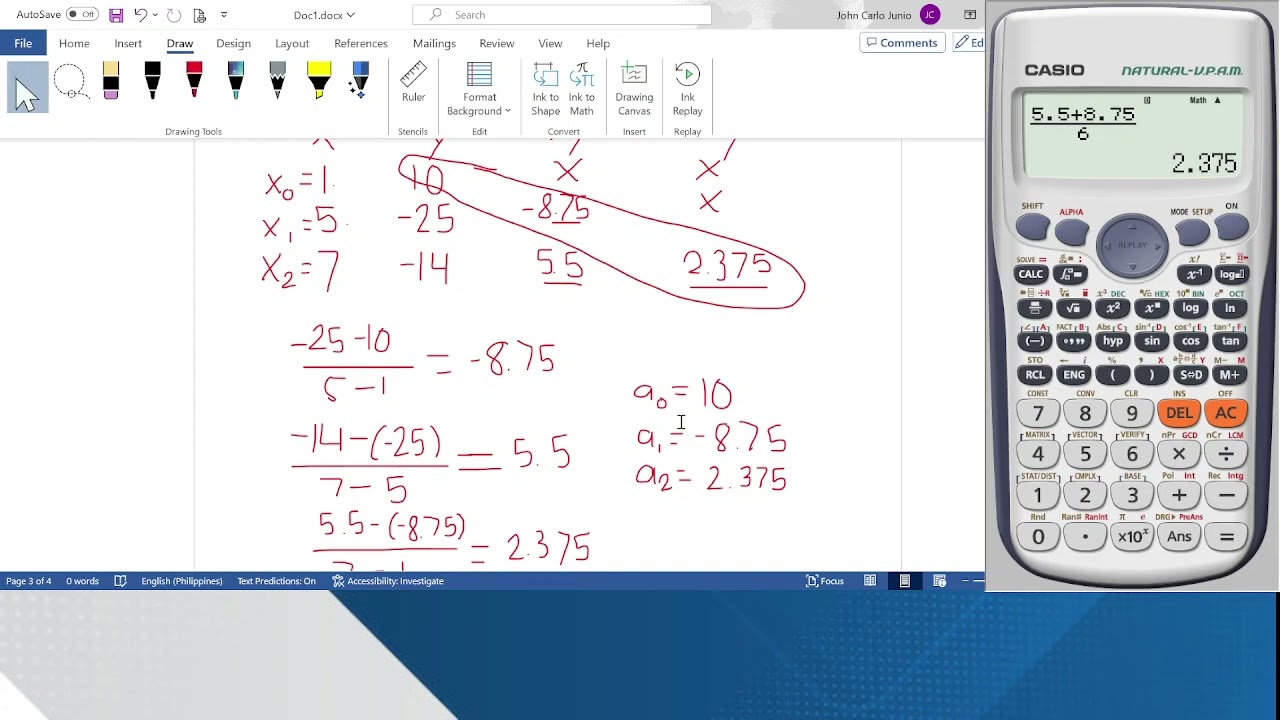 AutoSave Off Doc1.docx Search John Carlo Junio JC
File Home Insert Draw Design Layout References Mailings Review View Help Comments Ed
Ruler Format Background Ink to Shape Ink to Math Drawing Canvas Ink Replay
Drawing Tools Stencils Edit Convert Insert Replay
x₀ = 1 10 x x
x₁ = 5 -25 -8.75 x
x₂ = 7 -14 5.5 2.375
-25 -10 / 5 - 1 = -8.75
a₀ = 10
a₁ = -8.75
-14 - (-25) / 7 - 5 = 5.5
a₂ = 2.375
5.5 - (-8.75) / 7 - 1 = 2.375
Page 3 of 4 0 words English (Philippines) Text Predictions: On Accessibility: Investigate Focus
CASIO NATURAL-V.P.A.M.
Math ▲
5.5+8.75
6
2.375
SHIFT ALPHA MODE SETUP ON
REPLAY
SOLVE = x! 
CALC x⁻¹ log
x³ DEC HEX 10ˣ BIN eˣ OCT
√ x² log ln
FACT B Abs C sin⁻¹ D cos⁻¹ E tan⁻¹ F
(−) hyp sin cos tan
STO ← i % , X Y M− M
RCL ENG ( ) S⇔D M+
CONST CONV CLR INS OFF
7 8 9 DEL AC
MATRIX VECTOR VERIFY nPr GCD nCr LCM
4 5 6 × ÷
STAT/DIST CMPLX BASE Pol Int Rec Intg
1 2 3 + −
Rnd Ran# RanInt π e DRG▸ PreAns
0 · ×10ˣ Ans =